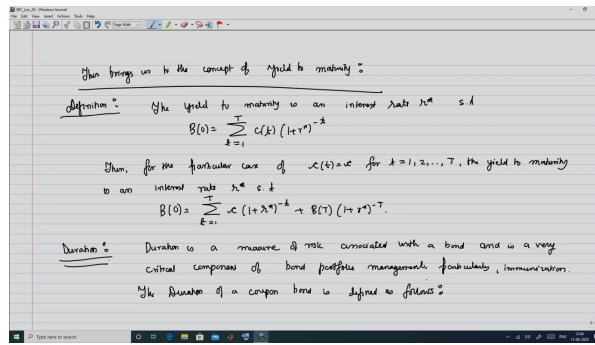 SPC_Lec_05 - Windows Journal
File Edit View Insert Actions Tools Help
Page Width
This brings us to the concept of Yield to maturity :
Definition : The yield to maturity is an interest rate r* s.t
B(0) = \sum_{t=1}^{T} c(t) (1+r*)^{-t}
Then, for the particular case of c(t)=c for t=1,2,..,T, the yield to maturity
is an interest rate r* s.t
B(0) = \sum_{t=1}^{T} c (1+r*)^{-t} + B(T) (1+r*)^{-T}.
Duration : Duration is a measure of risk associated with a bond and is a very
critical component of bond portfolio management, particularly, immunization.
The Duration of a coupon bond is defined as follows :
Type here to search
ENG